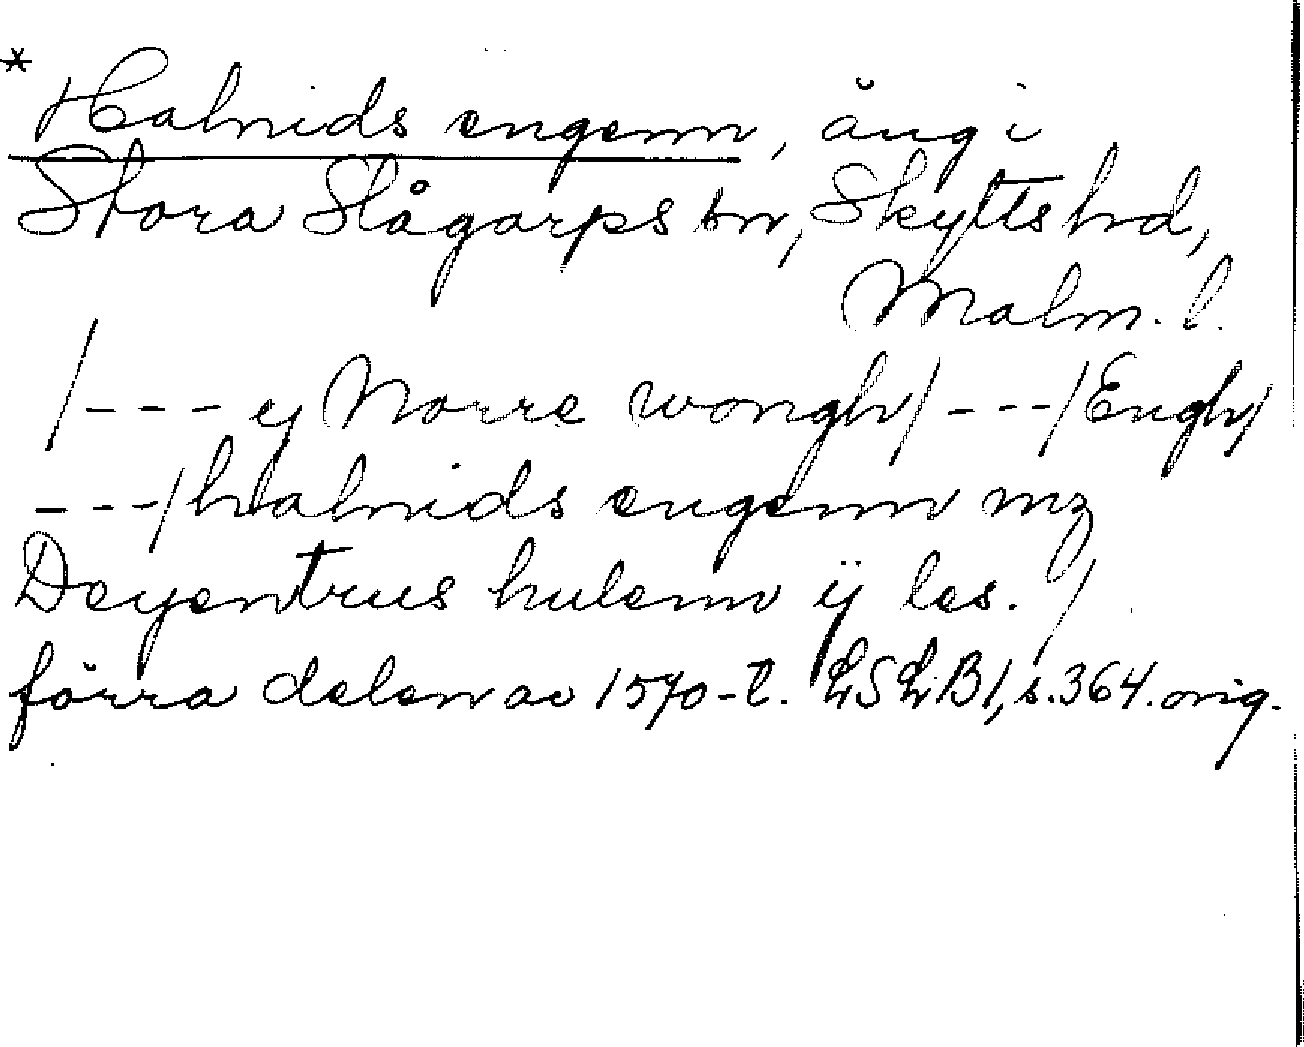 * Halnids engenn, äng i
Stora Slågarps sn, Skytts hd,
Malm. l.
/--- ej Norre wongh/ ---/Engh/
---/halnids engenn mz
Deyentrus hulenn ij les./
förra delen av 1570-t. LSLB1, s.364. orig.